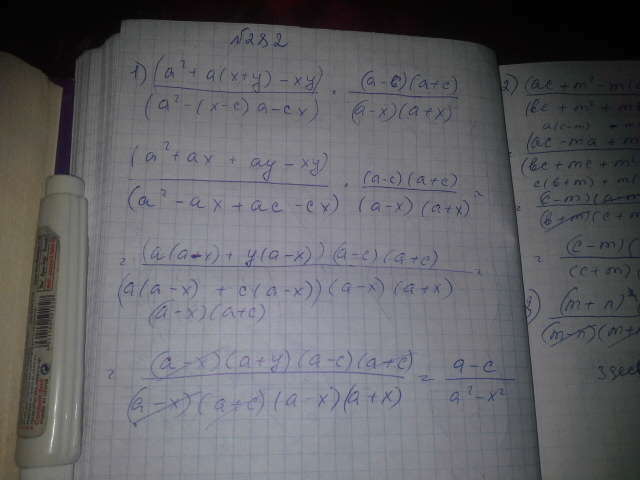 №282
1) (a² + a(x+y) - xy) / (a² - (x-c) a - cx) · (a-c)(a+c) / (a-x)(a+x)
(a² + ax + ay - xy) / (a² - ax + ac - cx) · (a-c)(a+c) / (a-x)(a+x) =
= (a(a-x) + y(a-x))(a-c)(a+c) / (a(a-x) + c(a-x))(a-x)(a+x) =
(a-x)(a+c)
= (a-x)(a+y)(a-c)(a+c) / (a-x)(a+c)(a-x)(a+x) = a-c / a²-x²
2) (ac + m² - m(
(bc + m² + m
a(c-m) + m
(ac - ma + m
(bc + mc + m
c(b+m) + m(
= (c-m)(a+m
(b+m)(c+m
= (c-m)(
(c+m)
3) (m+n)²
(m-n)(m+n